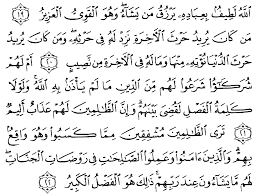 اللَّهُ لَطِيفٌ بِعِبَادِهِ يَرْزُقُ مَن يَشَاءُ وَهُوَ الْقَوِيُّ الْعَزِيزُ ١٩
مَن كَانَ يُرِيدُ حَرْثَ الْآخِرَةِ نَزِدْ لَهُ فِي حَرْثِهِ وَمَن كَانَ يُرِيدُ
حَرْثَ الدُّنْيَا نُؤْتِهِ مِنْهَا وَمَا لَهُ فِي الْآخِرَةِ مِن نَّصِيبٍ ٢٠ أَمْ لَهُمْ
شُرَكَاءُ شَرَعُوا لَهُم مِّنَ الدِّينِ مَا لَمْ يَأْذَن بِهِ اللَّهُ وَلَوْلَا
كَلِمَةُ الْفَصْلِ لَقُضِيَ بَيْنَهُمْ وَإِنَّ الظَّالِمِينَ لَهُمْ عَذَابٌ أَلِيمٌ
٢١ تَرَى الظَّالِمِينَ مُشْفِقِينَ مِمَّا كَسَبُوا وَهُوَ وَاقِعٌ
بِهِمْ وَالَّذِينَ آمَنُوا وَعَمِلُوا الصَّالِحَاتِ فِي رَوْضَاتِ الْجَنَّاتِ
لَهُم مَّا يَشَاءُونَ عِندَ رَبِّهِمْ ذَٰلِكَ هُوَ الْفَضْلُ الْكَبِيرُ ٢٢